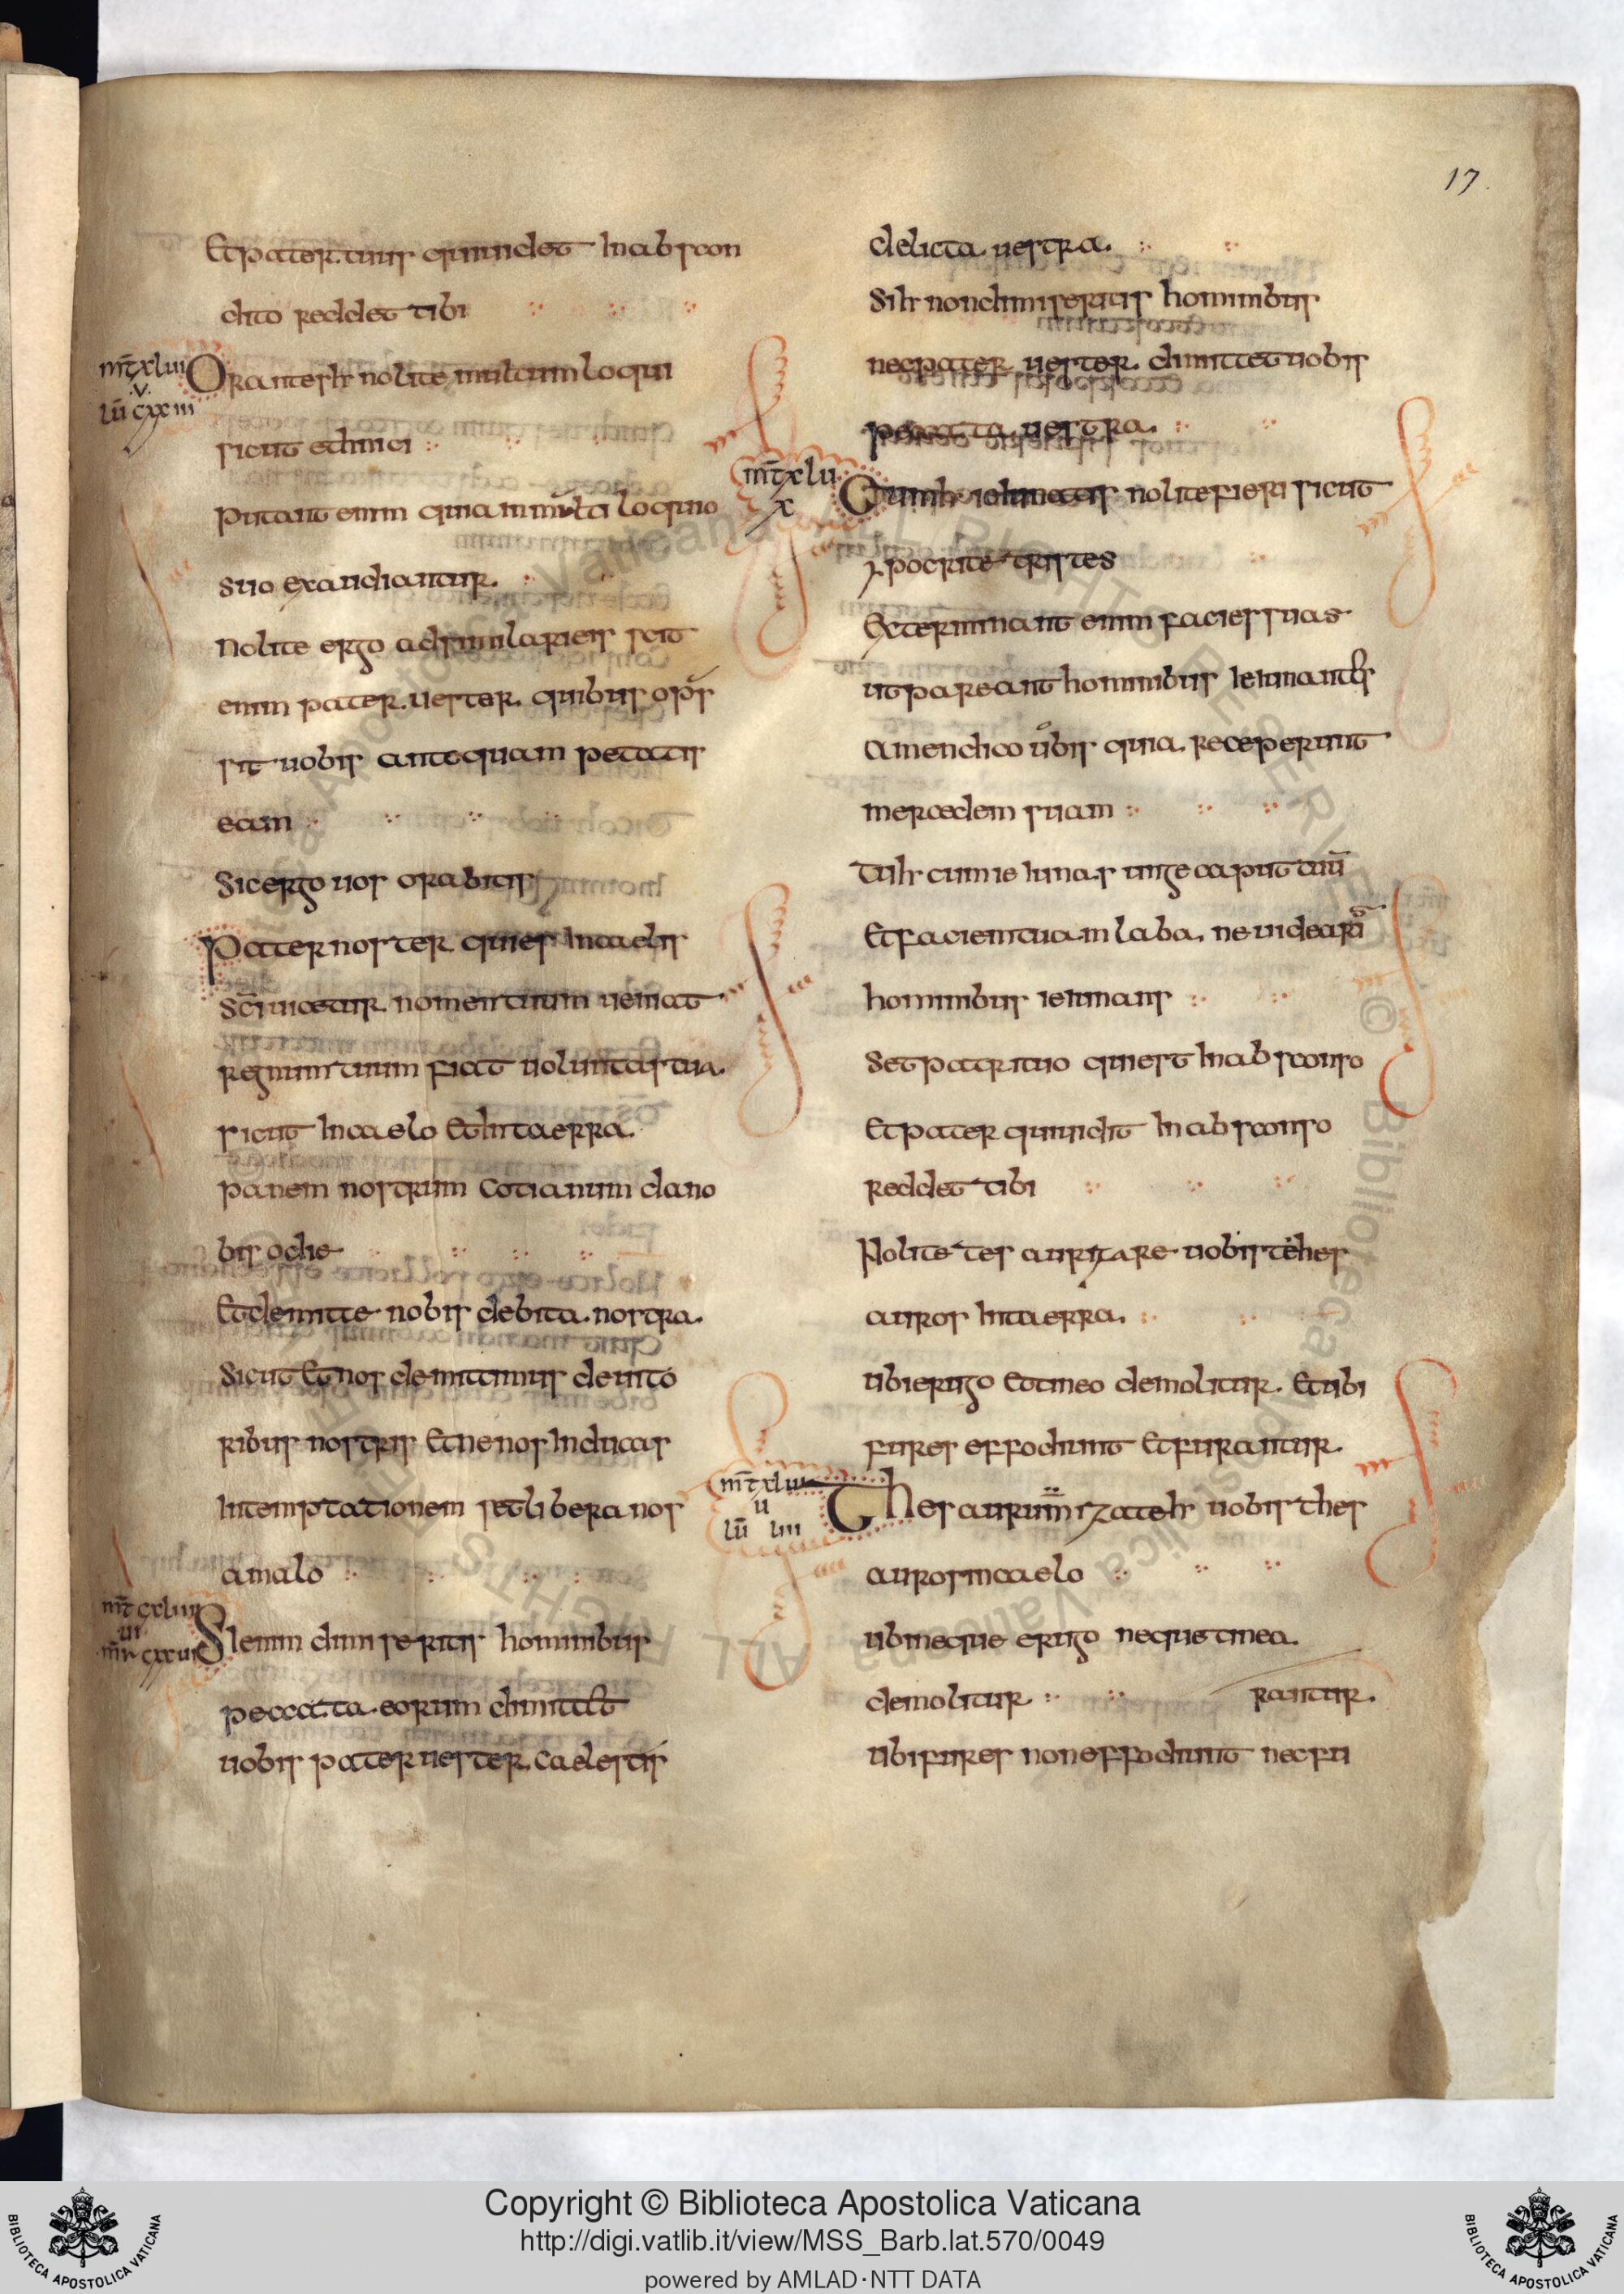 17.
Et pater tuus qui uidet In abscon
dito reddet tibi
mt xliii
v
lu cxxiii
Orantes hr nolite multum loqui
sicut ethnici
putant enim quia in multi loquio
suo exaudiantur.
Nolite ergo adsimilari eis scit
enim pater uester quibus opus
sit uobis antequam petatis
eam
Sic ergo uos orabitis
Pater noster qui es In caelis
scificetur nomen tuum ueniat
regnum tuum fiat uoluntas tua.
sicut In caelo Et In taerra.
panem nostrum cotianum da no
bis odie
Et demitte nobis debita nostra.
Sicut Et nos demittimus deuito
ribus nostris Et ne nos Inducas
In temptationem set libera nos
a malo
mt cxliiii
ui
mr cxxui
Si enim dimiseritis hominibus
peccata eorum dimittet
uobis pater uester caelestis
delicta uestra.
Si hr non dimiseritis hominibus
nec pater uester dimittet uobis
peccata uestra.
mt xlu
x
Cum hr ieiunatis nolite fieri sicut
ypocrite tristes
Exterminant enim facies suas
ut pareant hominibus Ieiunantes
Amen dico uobis quia receperunt
mercedem suam
Tu hr cum ieiunas unge caput tuu
Et faciem tuam laba. ne uidearis
hominibus ieiunans
Set patri tuo qui est In absconso
Et pater qui uidit In absconso
reddet tibi
Nolite tes aurizare uobis thes
auros In taerra.
ubi erugo Et tineo demolitur. Et ubi
fures effodiunt Et furantur.
mt xlui
u
lu liii
Thes aurum izate hr uobis thes
auros in caelo
ubi neque erugo neque tinea.
demolitur
rantur.
ubi fures non effodiunt nec fu
Copyright © Biblioteca Apostolica Vaticana
http://digi.vatlib.it/view/MSS_Barb.lat.570/0049
powered by AMLAD·NTT DATA
BIBLIOTECA APOSTOLICA VATICANA
BIBLIOTECA APOSTOLICA VATICANA
© Biblioteca Apostolica Vaticana ALL RIGHTS RESERVED